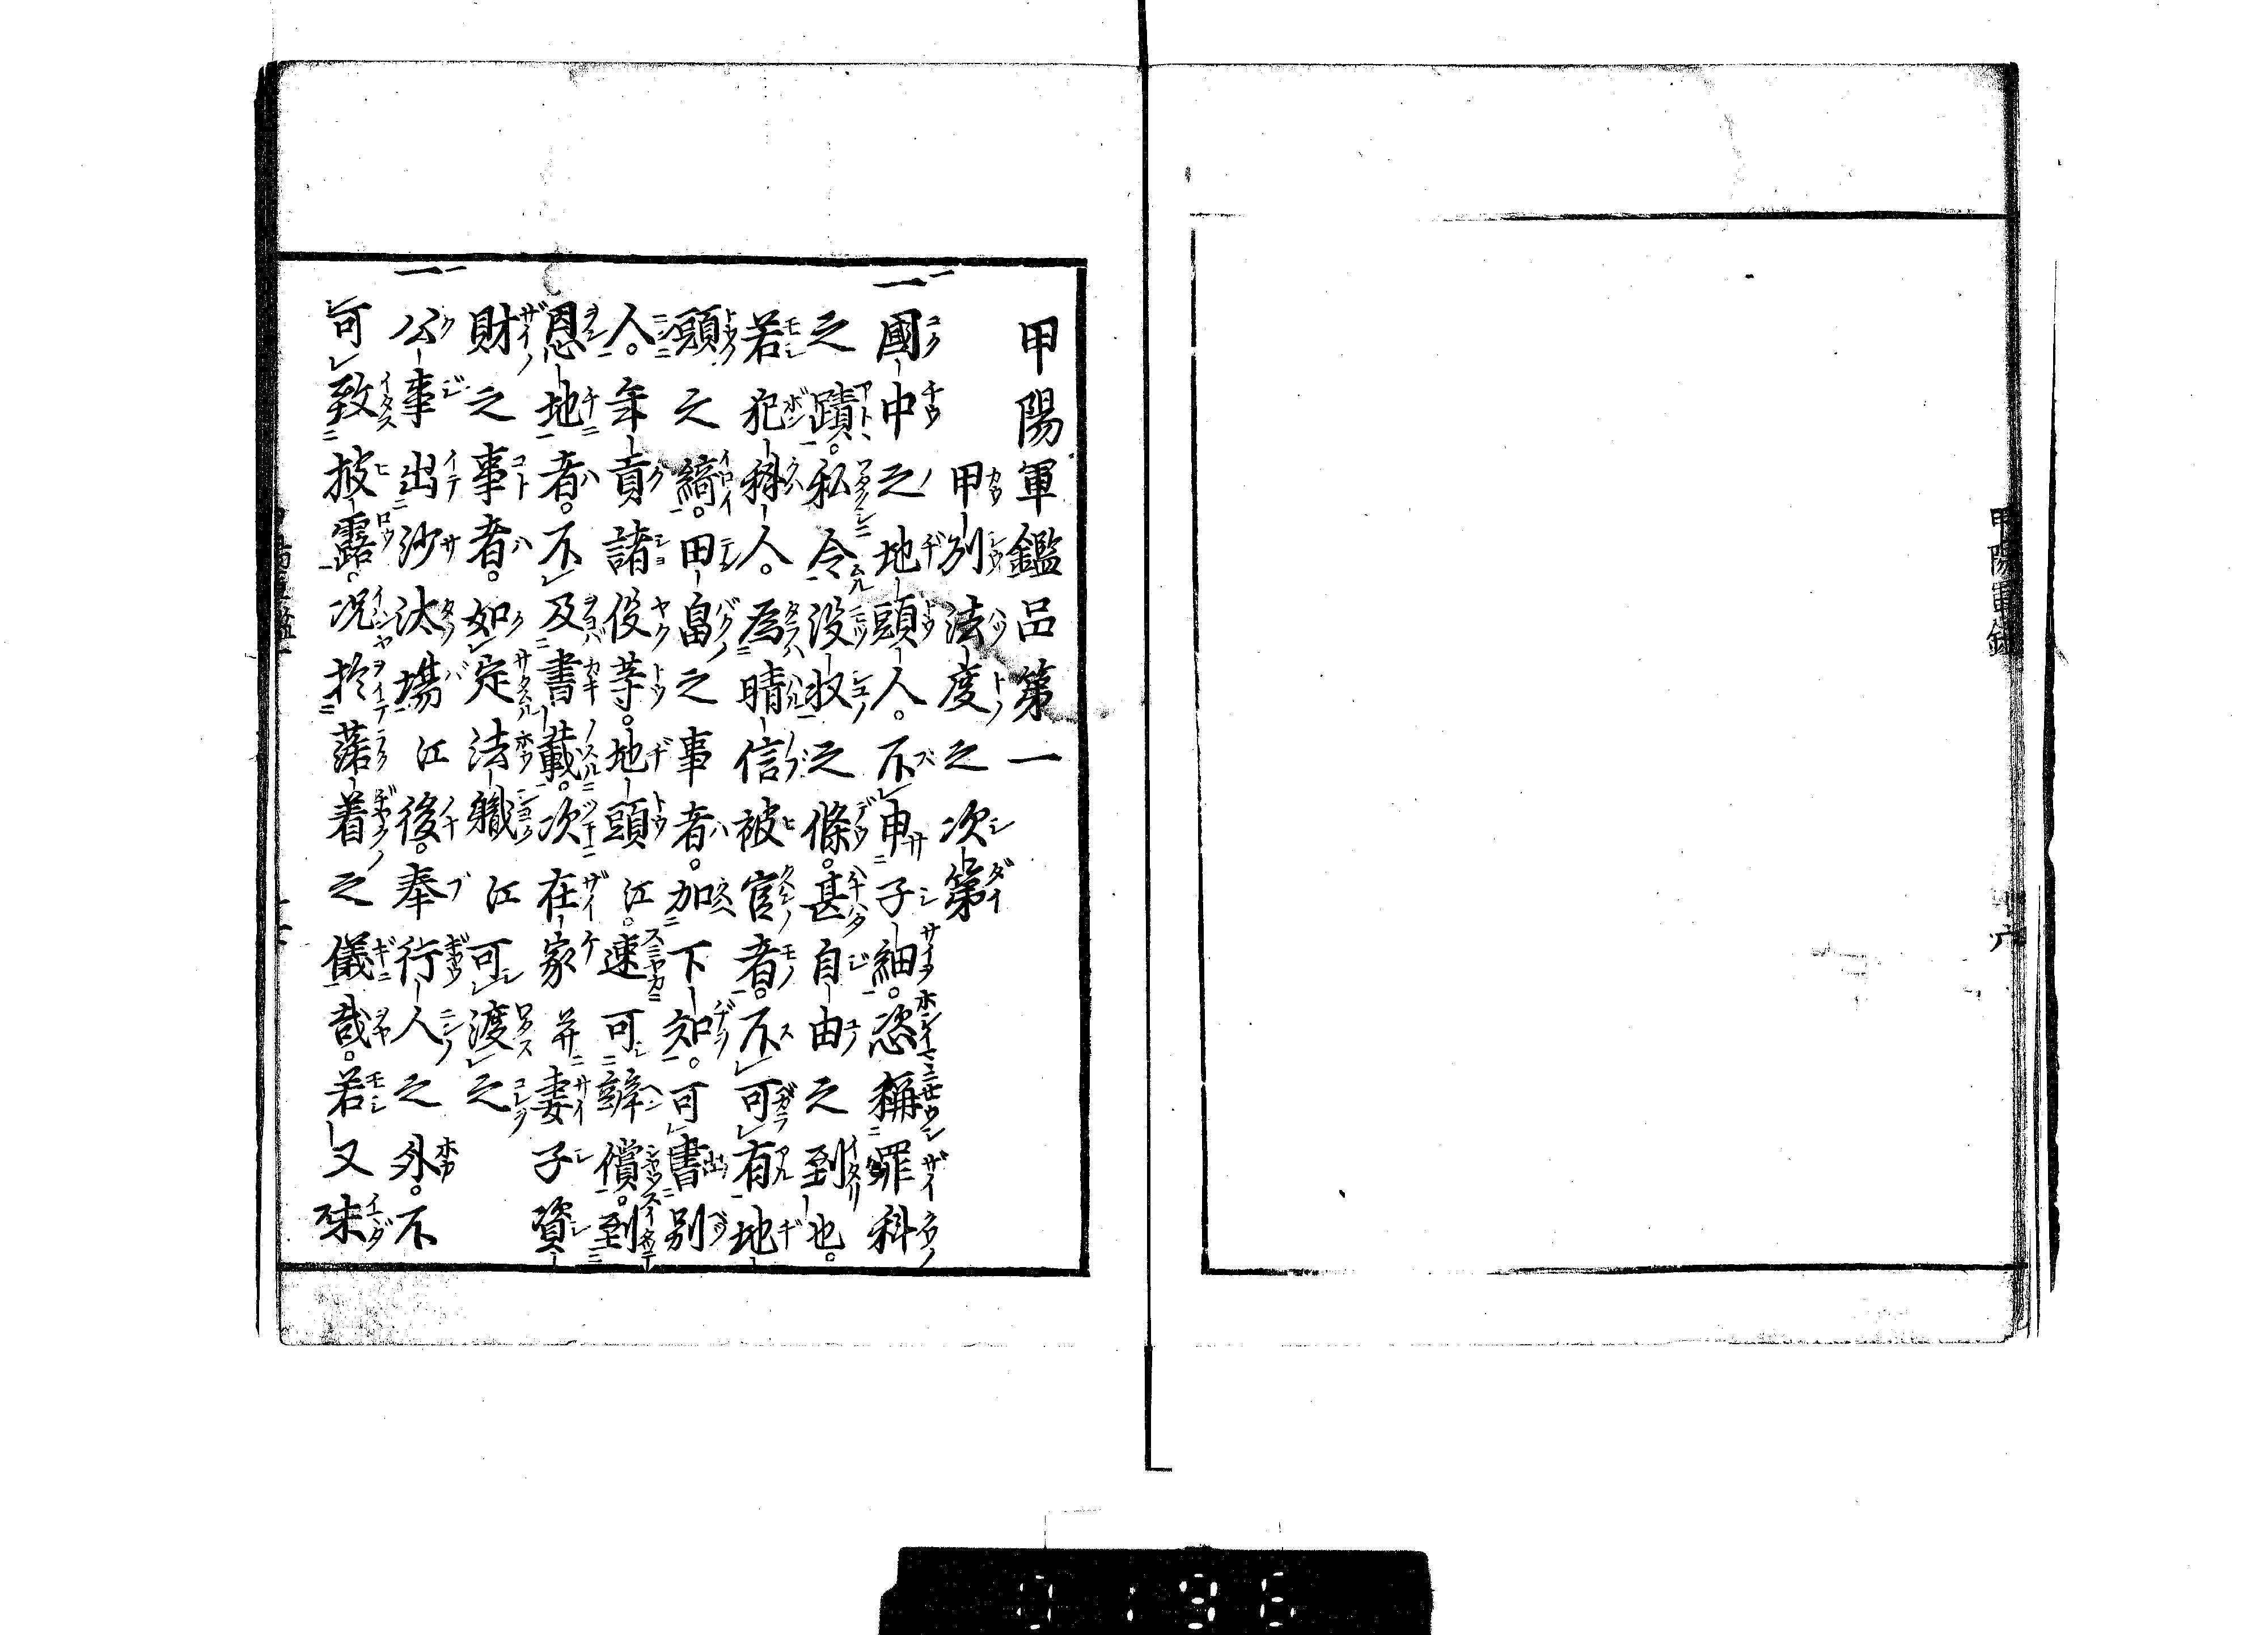 甲陽軍鑑
六
甲陽軍鑑品第一
甲州法度之次第
一國中之地頭人。不申子細。恣稱罪科
之蹟。私令沒收之條。甚自由之到也。
若犯科人。為晴信被官者。不可有地
頭之綺。田畠之事者。加下知。可書別
人。年貢諸役等。地頭江。速可辨償。到
恩地者。不及書載。次在家并妻子資
財之事者。如定法職江可渡之
一公事出沙汰場江後。奉行人之外。不
可致披露。况於落着之儀哉。若又未
0196